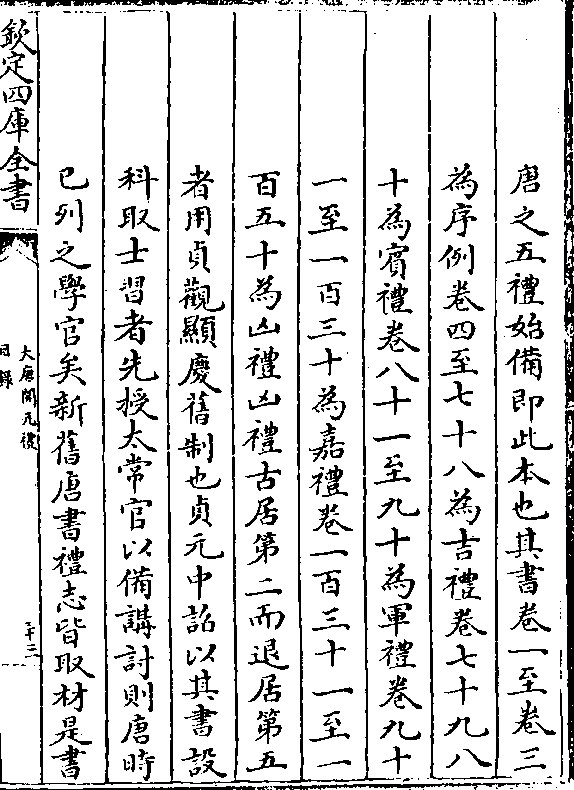 唐之五禮始備即此本也其書卷一至卷三
為序例卷四至七十八為吉禮卷七十九八
十為賓禮卷八十一至九十為軍禮卷九十
一至一百三十為嘉禮卷一百三十一至一
百五十為凶禮凶禮古居第二而退居第五
者用貞觀顯慶舊制也貞元中詔以其書設
科取士習者先授太常官以備講討則唐時
已列之學官矣新舊唐書禮志皆取材是書
欽定四庫全書
大唐開元禮
目錄
三十三